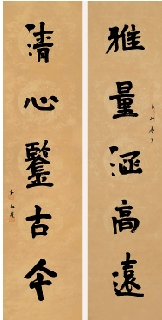 雅量涵高遠
清心鑒古今